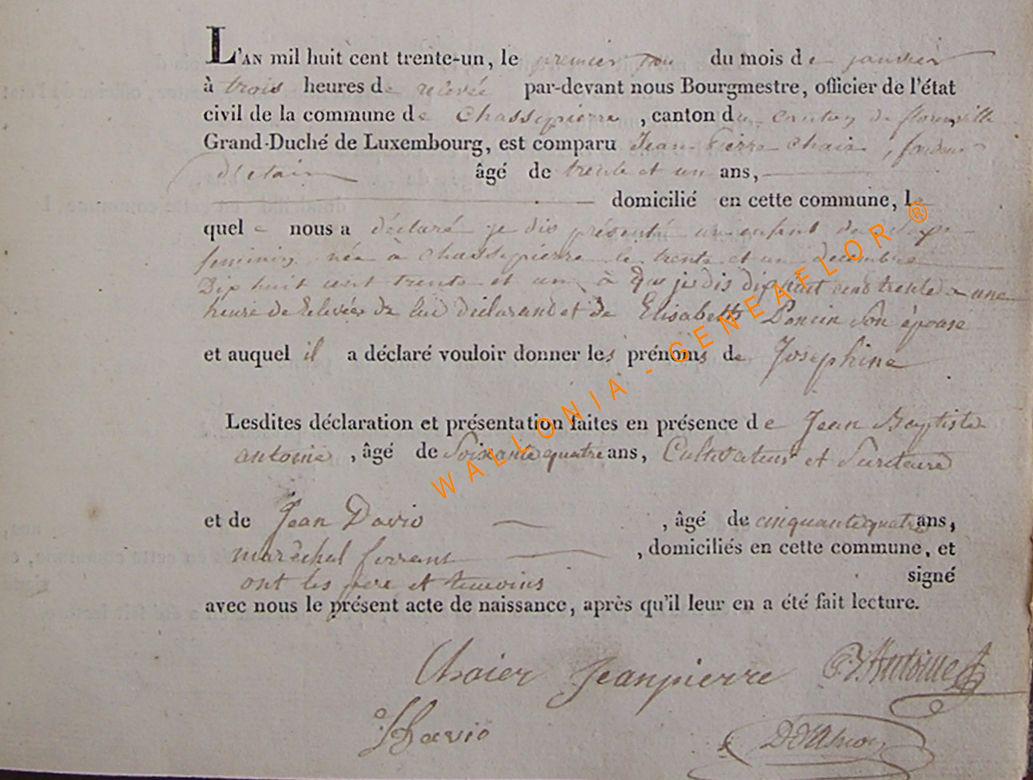 L'AN mil huit cent trente-un, le premier jour du mois de janvier
à trois heures de relevée par-devant nous Bourgmestre, officier de l'état
civil de la commune de Chassepierre, canton du canton de florenville
Grand-Duché de Luxembourg, est comparu Jean Pierre Chaier, fondeur
d'étain âgé de trente et un ans,
domicilié en cette commune, le
quel nous a déclaré je dis présenté un enfant du sexe
feminin née à Chassepierre le trente et un decembre
Dix huit cent trente et un, à que je dis dix huit cent trente a une
heure de Relevée de lui déclarant et de Elisabeth Poncin Son épouse
et auquel il a déclaré vouloir donner les prénoms de Josephine
Lesdites déclaration et présentation faites en présence de Jean Baptiste
antoine, âgé de Soixante quatre ans, Cultivateur et
et de Jean Davio, âgé de cinquante quatre ans,
maréchal ferrant, domiciliés en cette commune, et
ont les pere et temoins signé
avec nous le présent acte de naissance, après qu'il leur en a été fait lecture.
Chaier Jeanpierre Antoine
Davio
WALLONIA - GENEAFLOR ®